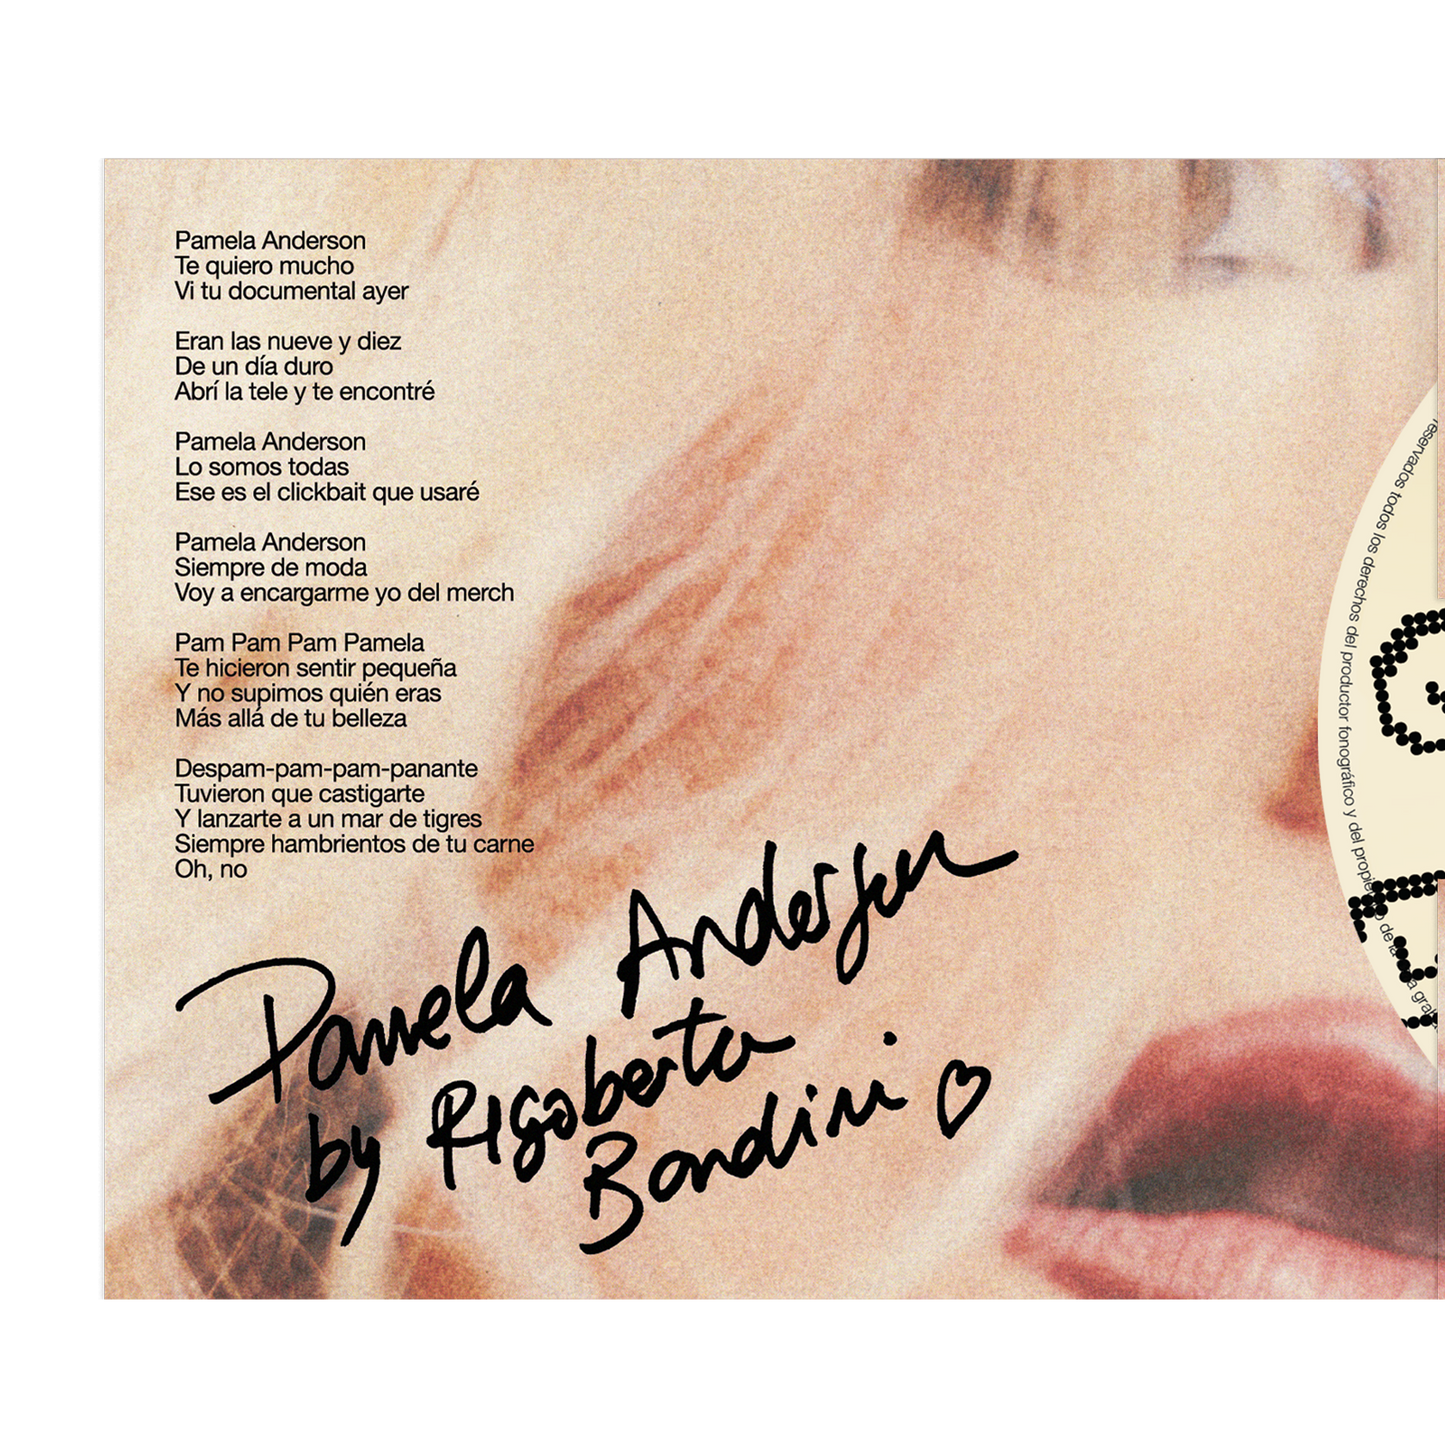 Pamela Anderson
Te quiero mucho
Vi tu documental ayer
Eran las nueve y diez
De un día duro
Abrí la tele y te encontré
Pamela Anderson
Lo somos todas
Ese es el clickbait que usaré
Pamela Anderson
Siempre de moda
Voy a encargarme yo del merch
Pam Pam Pam Pamela
Te hicieron sentir pequeña
Y no supimos quién eras
Más allá de tu belleza
Despam-pam-pam-panante
Tuvieron que castigarte
Y lanzarte a un mar de tigres
Siempre hambrientos de tu carne
Oh, no
Pamela Anderson
by Rigoberta
Bandini
reservados todos los derechos del productor fonográfico y del
G